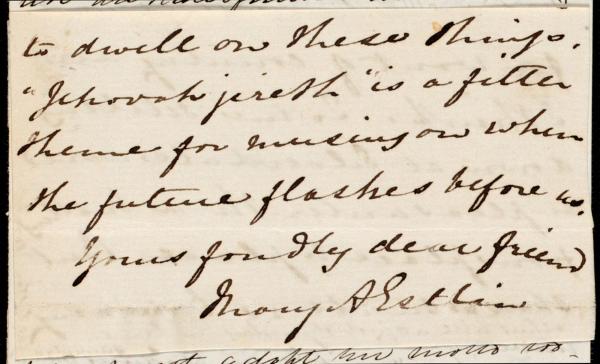 to dwell on these things.
"Jehovah jireth" is a fitter
theme for musing on when
the future flashes before us.
Yours fondly dear friend
Mary A Estlin
adopt motto